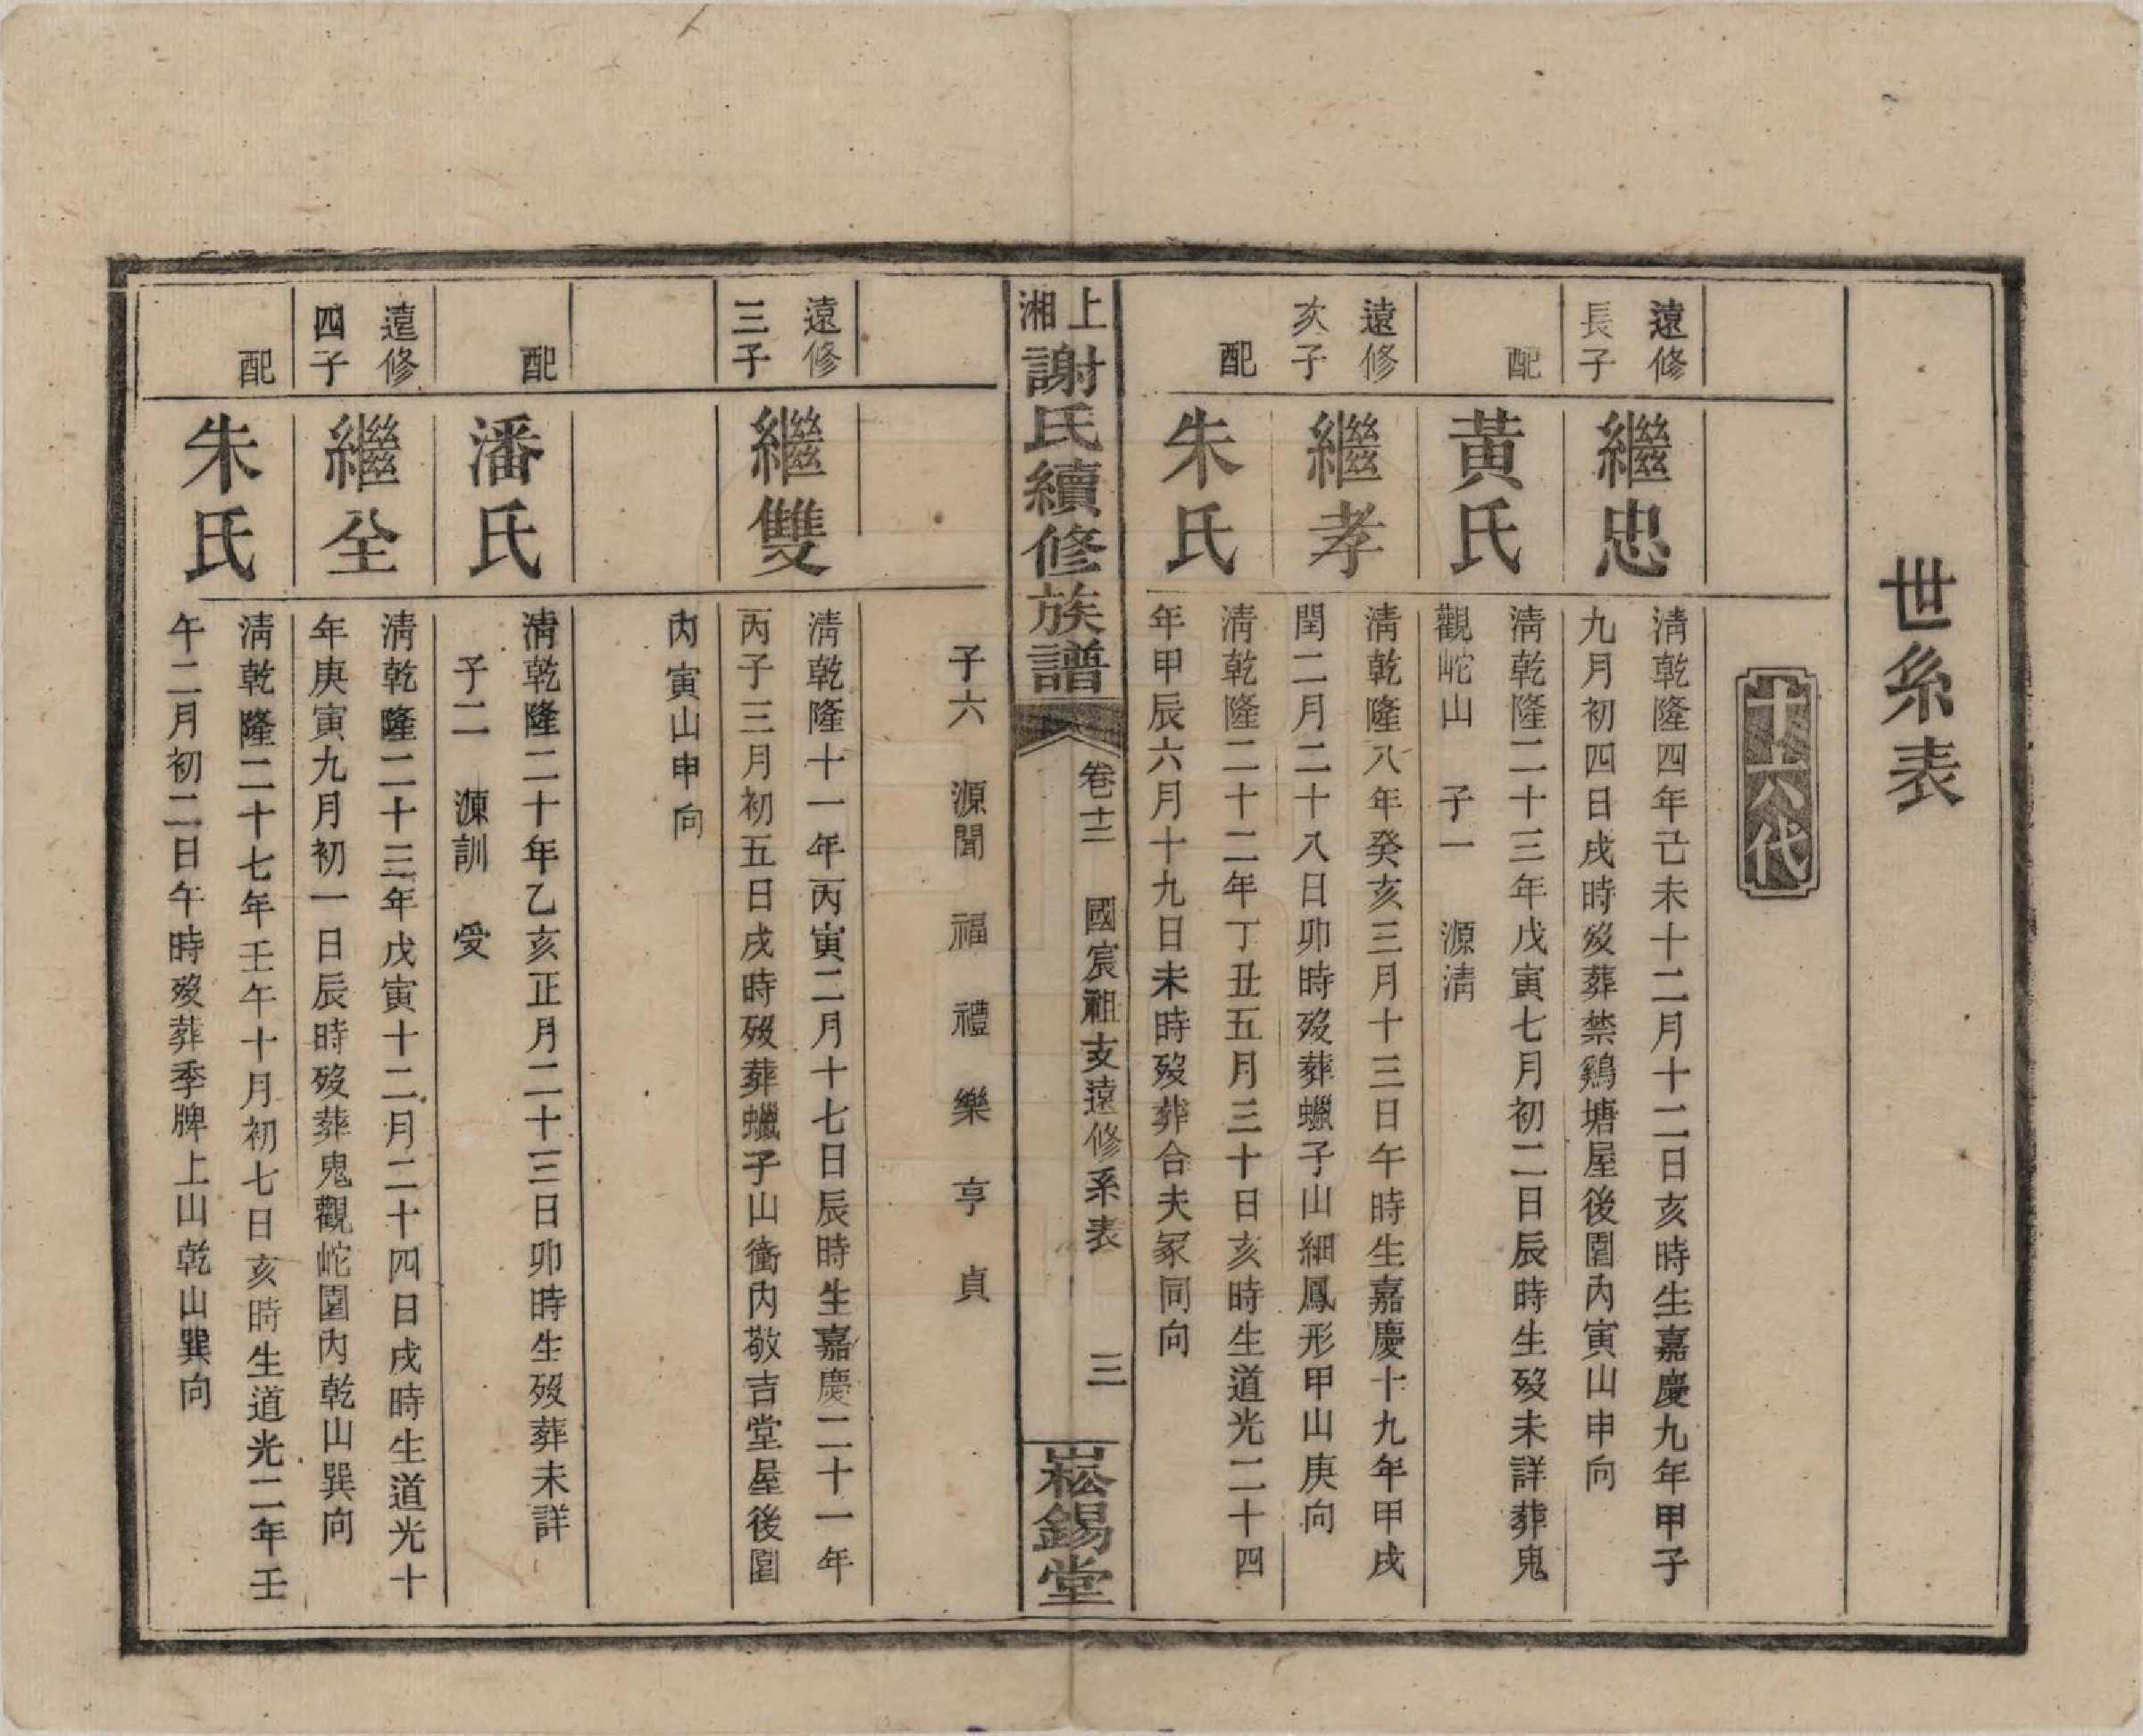 世系表
十六代
遠修
長子
繼忠
淸乾隆四年己未十二月十二日亥時生嘉慶九年甲子
九月初四日戌時歿葬禁鷄塘屋後園內寅山申向
配
黃氏
淸乾隆二十三年戊寅七月初二日辰時生歿未詳葬鬼
觀岮山 子一 源淸
遠修
次子
繼孝
淸乾隆八年癸亥三月十三日午時生嘉慶十九年甲戌
閏二月二十八日卯時歿葬蠟子山細鳳形甲山庚向
配
朱氏
淸乾隆二十二年丁丑五月三十日亥時生道光二十四
年甲辰六月十九日未時歿葬合夫冢同向
上湘
謝氏續修族譜
卷十三 國宸祖支遠修系表 三
崧錫堂
子六 源聞 福 禮 樂 亨 貞
遠修
三子
繼雙
淸乾隆十一年丙寅二月十七日辰時生嘉慶二十一年
丙子三月初五日戌時歿葬蠟子山衝內敬吉堂屋後園
內寅山申向
配
潘氏
淸乾隆二十年乙亥正月二十三日卯時生歿葬未詳
子二 源訓 受
遠修
四子
繼全
淸乾隆二十三年戊寅十二月二十四日戌時生道光十
年庚寅九月初一日辰時歿葬鬼觀岮園內乾山巽向
配
朱氏
淸乾隆二十七年壬午十月初七日亥時生道光二年壬
午二月初二日午時歿葬季牌上山乾山巽向